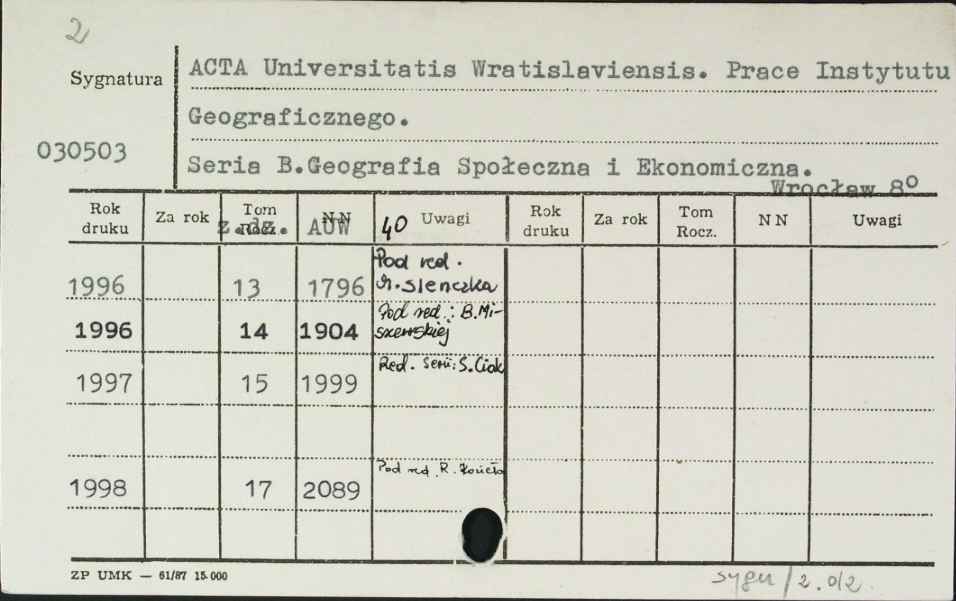 2
Sygnatura
ACTA Universitatis Wratislaviensis. Prace Instytutu
Geograficznego.
030503
Seria B.Geografia Społeczna i Ekonomiczna.
Wrocław 8°
Rok druku Za rok Tom Rocz. N N Uwagi Rok druku Za rok Tom Rocz. N N Uwagi
z.dz. AUW 40
1996 13 1796 Pod red. Slenczka
1996 14 1904 Pod red.: B.Miszewskiej
1997 15 1999 Red. serii: S. Ciok
1998 17 2089 Pod red. R. Łoucła
ZP UMK — 61/87 15.000
sygn/2.012.